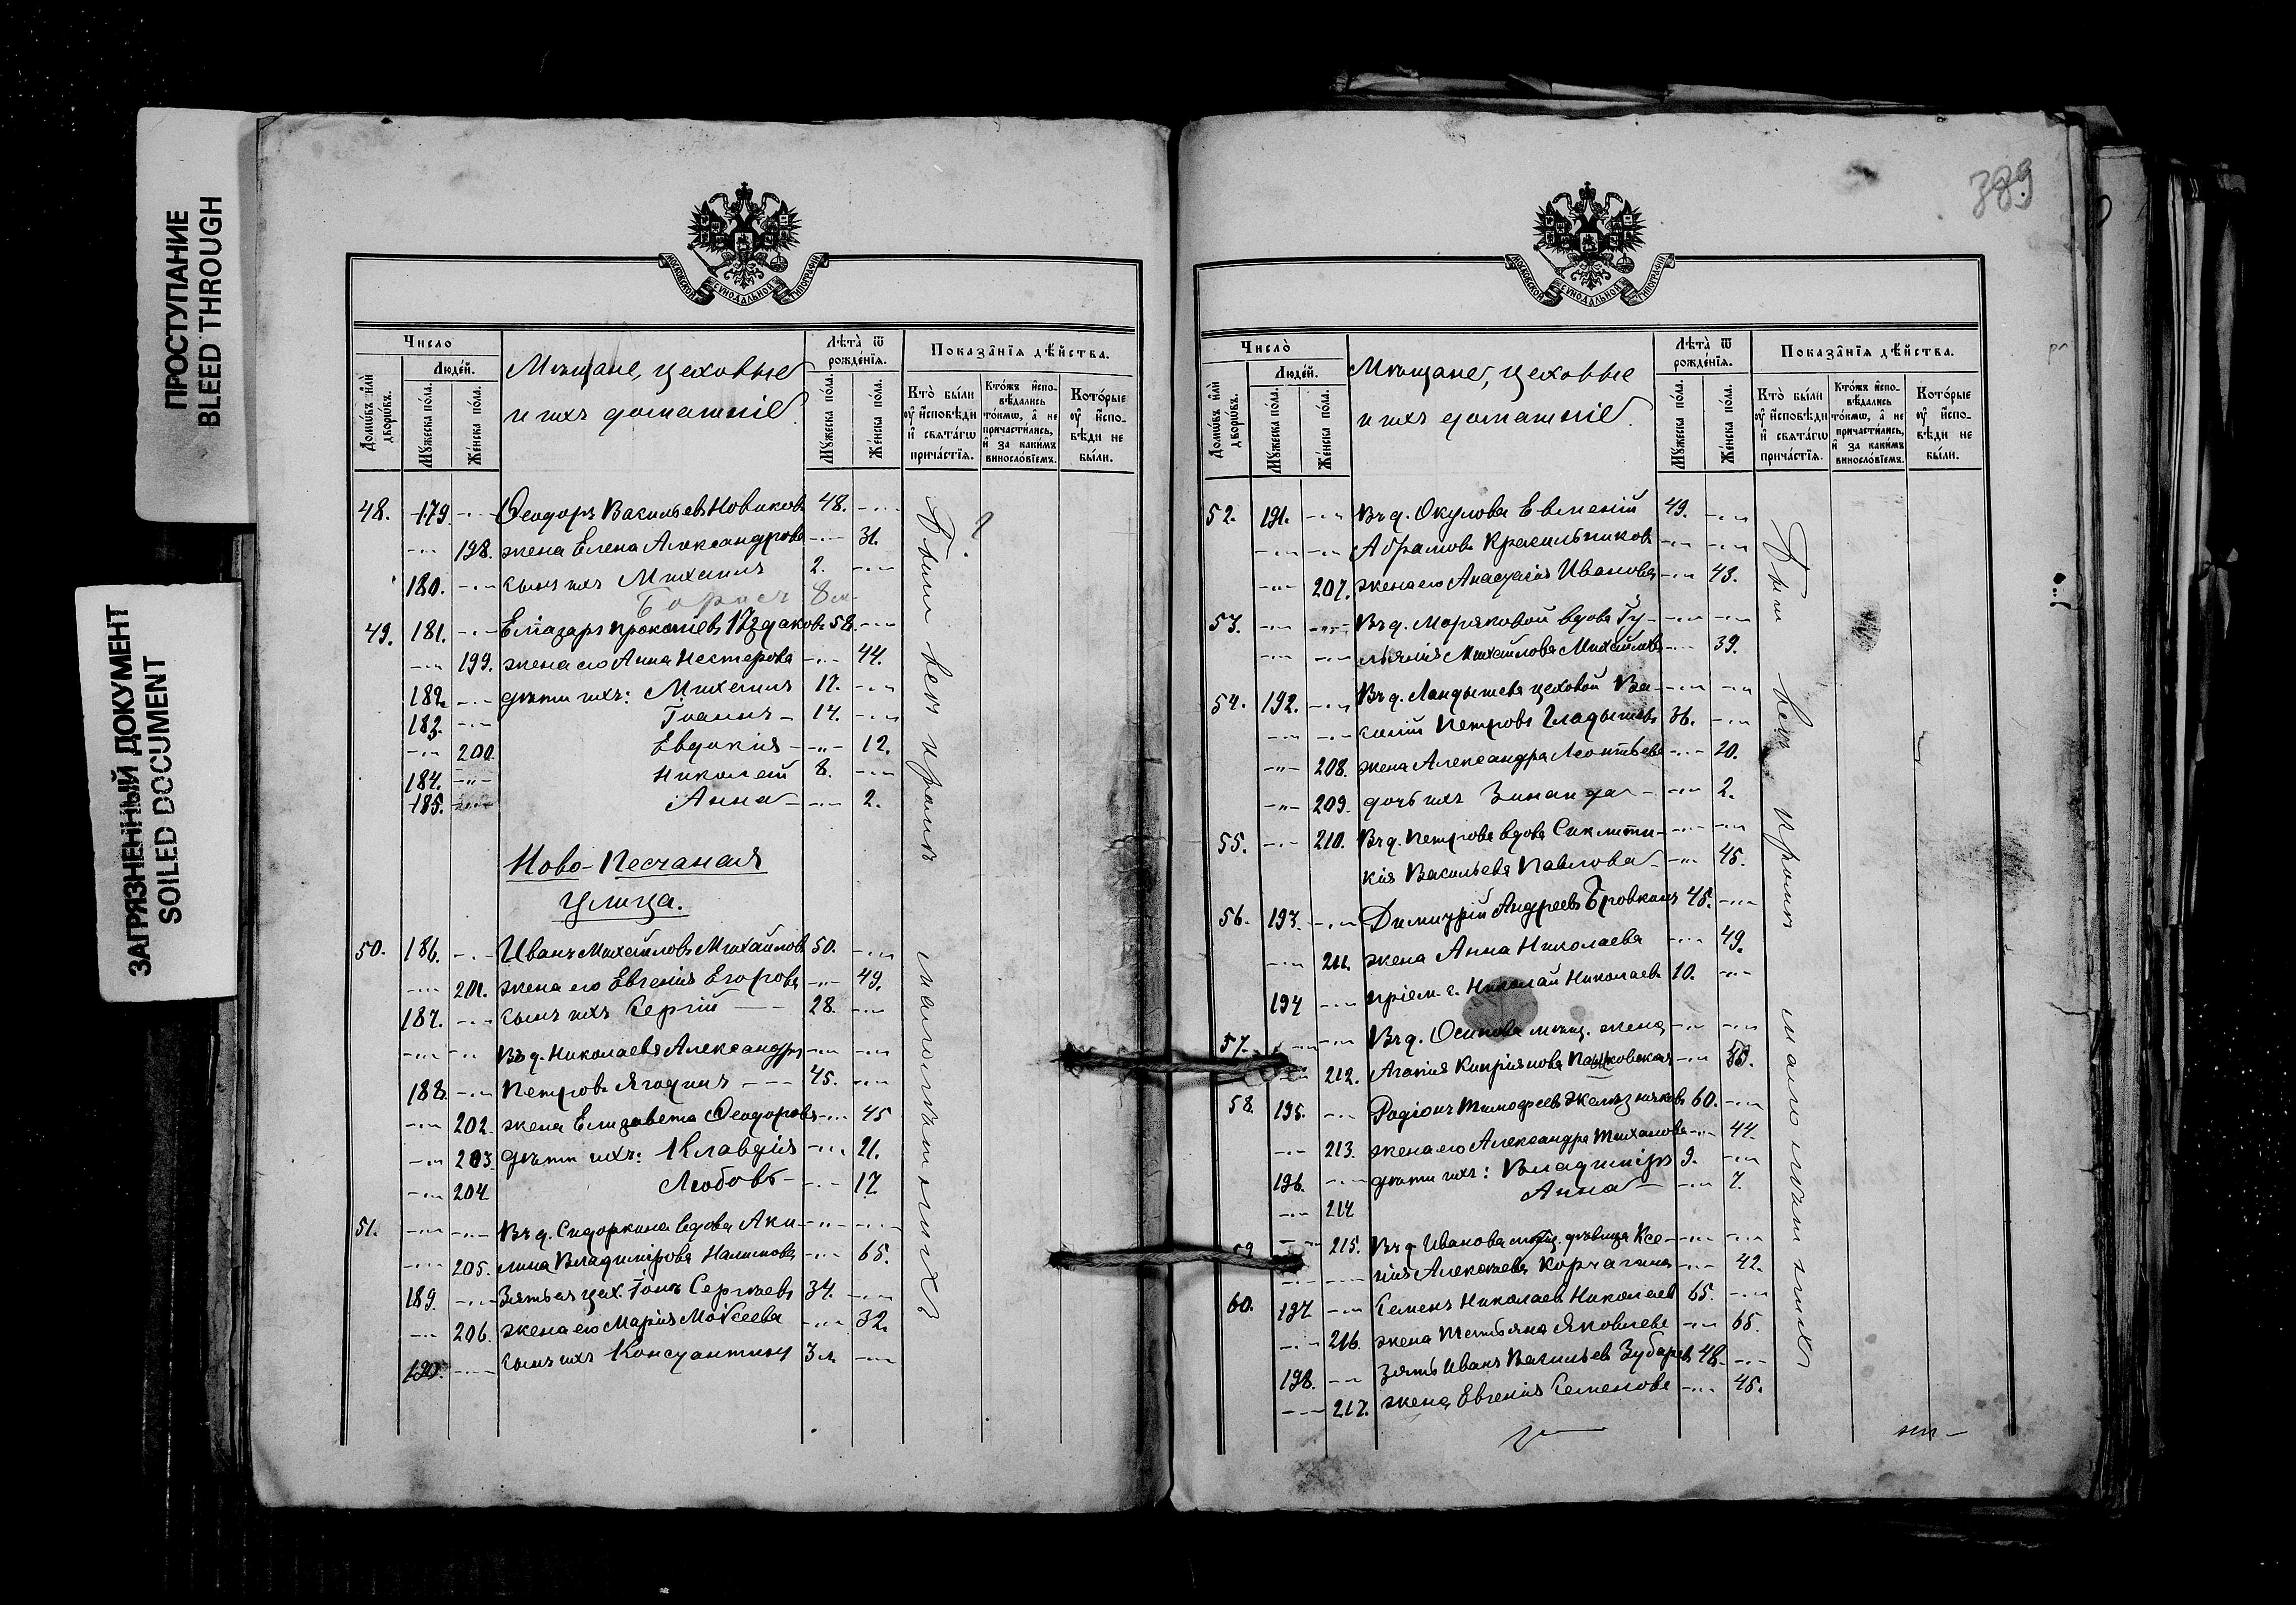 ПРОСТУПАНИЕ
BLEED THROUGH
ЗАГРЯЗНЕННЫЙ ДОКУМЕНТ
SOILED DOCUMENT
МОСКОВСКОЙ СѴНОДАЛЬНОЙ ТИПОГРАФІИ
Число
Людей.
Домѡвъ или дворѡвъ.
Мꙋжеска пола.
Женска пола.
Мѣщане, цеховые
и ихъ домашніе.
Лѣта ѿ
рожденія.
Мꙋжеска пола.
Женска пола.
Показанія дѣйства.
Кто были
ᲂу҆ исповѣди
и свѧтагѡ
причастїѧ.
Ктожъ испо-
вѣдались
токмѡ, а не
причастились,
и за какимъ
винословїемъ.
Которые
ᲂу҆ испо-
вѣди не
были.
48. 179. -.- Ѳеодоръ Васильевъ Новиковъ 48. -.-
-.- 198. жена Елена Александрова -.- 31.
180. -.- сынъ ихъ Михаилъ 2. -.-
Борисъ 8 м.
49. 181. -.- Елиазаръ Прокопіевъ Издаковъ 58. -.-
-.- 199. жена его Анна Нестерова -.- 44.
182. -.- дѣти ихъ: Михаилъ 17. -.-
183. -.- Іоаннъ - 14. -.-
-.- 200. Евдокія - -.- 12.
184. -.- Николай 8. -.-
185. -.- Анна - -.- 2.
Ново-Песчаная
улица.
50. 186. -.- Иванъ Михайловъ Михайловъ 50. -.-
-.- 201. жена его Евгенія Егорова -.- 49.
187. -.- сынъ ихъ Сергій - 28. -.-
-.- -.- Въ д. Николаева Александръ -.- -.-
188. -.- Петровъ Ягодинъ - 45. -.-
-.- 202. жена Елизавета Ѳеодорова -.- 45
-.- 203. дѣти ихъ: Клавдія -.- 21.
-.- 204. Любовь - -.- 17
51. -.- -.- Въ д. Сидоркина вдова Аки- -.- -.-
-.- 205. лина Владимірова Налимова -.- 65.
189. -.- Зять ея цех. Іона Сергѣевъ 34. -.-
-.- 206. жена его Марія Моѵсеева -.- 32.
190. -.- сынъ ихъ Константинъ 3 м. -.-
Были всѣ кромѣ малолѣтнихъ
389
МОСКОВСКОЙ СѴНОДАЛЬНОЙ ТИПОГРАФІИ
Число
Людей.
Домѡвъ или дворѡвъ.
Мꙋжеска пола.
Женска пола.
Мѣщане, цеховые
и ихъ домашніе.
Лѣта ѿ
рожденія.
Мꙋжеска пола.
Женска пола.
Показанія дѣйства.
Кто были
ᲂу҆ исповѣди
и свѧтагѡ
причастїѧ.
Ктожъ испо-
вѣдались
токмѡ, а не
причастились,
и за какимъ
винословїемъ.
Которые
ᲂу҆ испо-
вѣди не
были.
52. 191. -.- Въ д. Окулова Евменій 49. -.-
-.- -.- Абрамовъ Красильниковъ -.- -.-
-.- 207. жена его Анастасія Иванова -.- 43.
53. -.- -.- Въ д. Моряковой вдова Іу- -.- -.-
-.- -.- ліанія Михайлова Михайлова -.- 39.
54. 192. -.- Въ д. Ландышева цеховой Ва- -.- -.-
-.- -.- силій Петровъ Гладышевъ 36. -.-
-.- 208. жена Александра Леонтьева -.- 20.
-.- 209. дочь ихъ Зинаида - -.- 2.
55. -.- 210. Въ д. Петрова вдова Сиклити- -.- -.-
кія Васильева Павлова - -.- 45.
56. 193. -.- Димитрій Андреевъ Бровкинъ 45. -.-
-.- 211. жена Анна Николаева -.- 49.
194 -.- пріем. с. Николай Николаевъ 10. -.-
57. -.- -.- Въ д. Осипова мѣщ. жена -.- -.-
-.- 212. Агапія Кипріянова -.-
58. 195. -.- Родіонъ Тимофеевъ Желѣзняковъ 60. -.-
-.- 213. жена его Александра Тихонова -.- 44.
196. -.- дѣти ихъ: Владиміръ 9. -.-
-.- 214 Анна - -.- 7.
59 -.- 215. Въ д. Иванова мѣщ. дѣвица Ксе- -.- -.-
-.- -.- нія Алексѣева Корчагина -.- 42.
60. 197 -.- Семенъ Николаевъ Николаевъ 65. -.-
-.- 216. жена Татьяна Яковлева -.- 65.
198. -.- Зять Иванъ Васильевъ Зубаревъ 48. -.-
-.- 217. жена Евгенія Семенова -.- 45.
Были всѣ кромѣ малолѣтнихъ